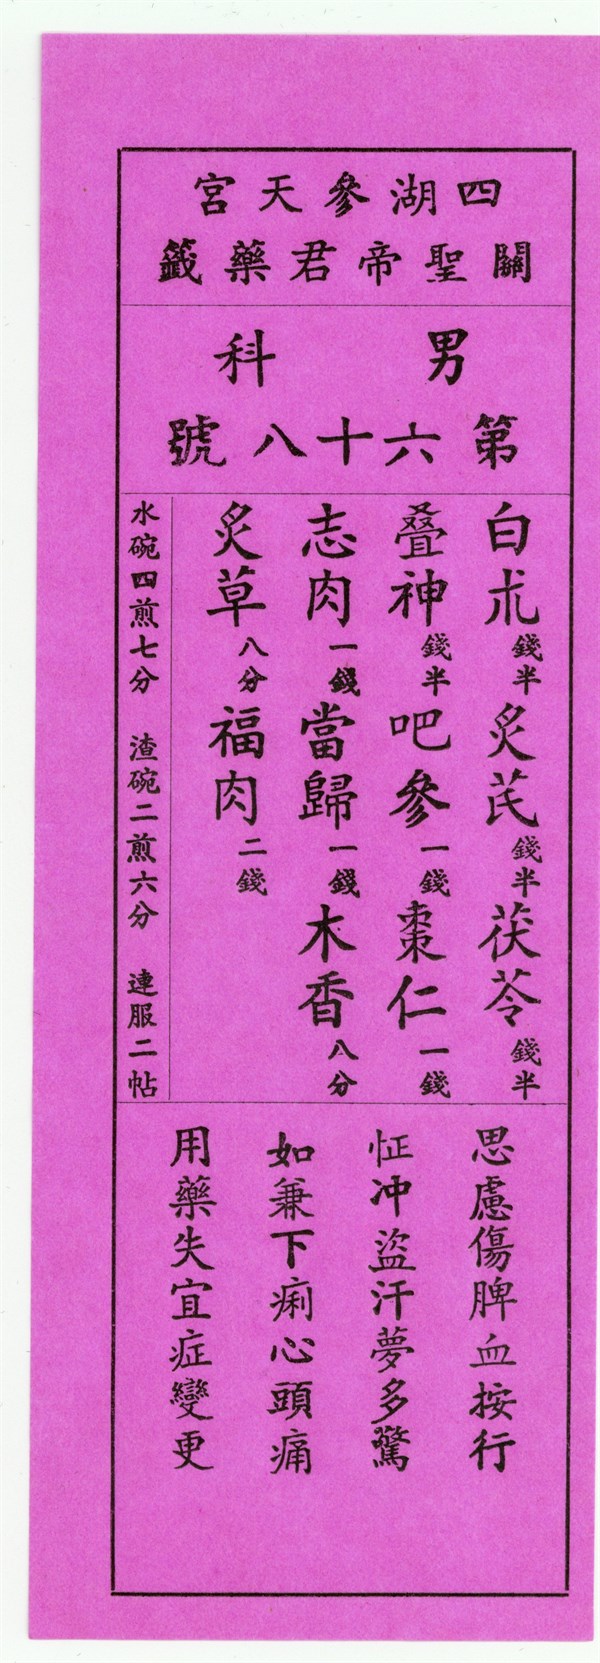 四湖參天宮
關聖帝君藥籤
男科
第六十八號
白朮錢半 炙芪錢半 茯苓錢半
叠神錢半 吧參一錢 棗仁一錢
志肉一錢 當歸一錢 木香八分
炙草八分 福肉二錢
水碗四煎七分 渣碗二煎六分 連服二帖
思慮傷脾血按行
怔冲盜汗夢多驚
如兼下痢心頭痛
用藥失宜症變更